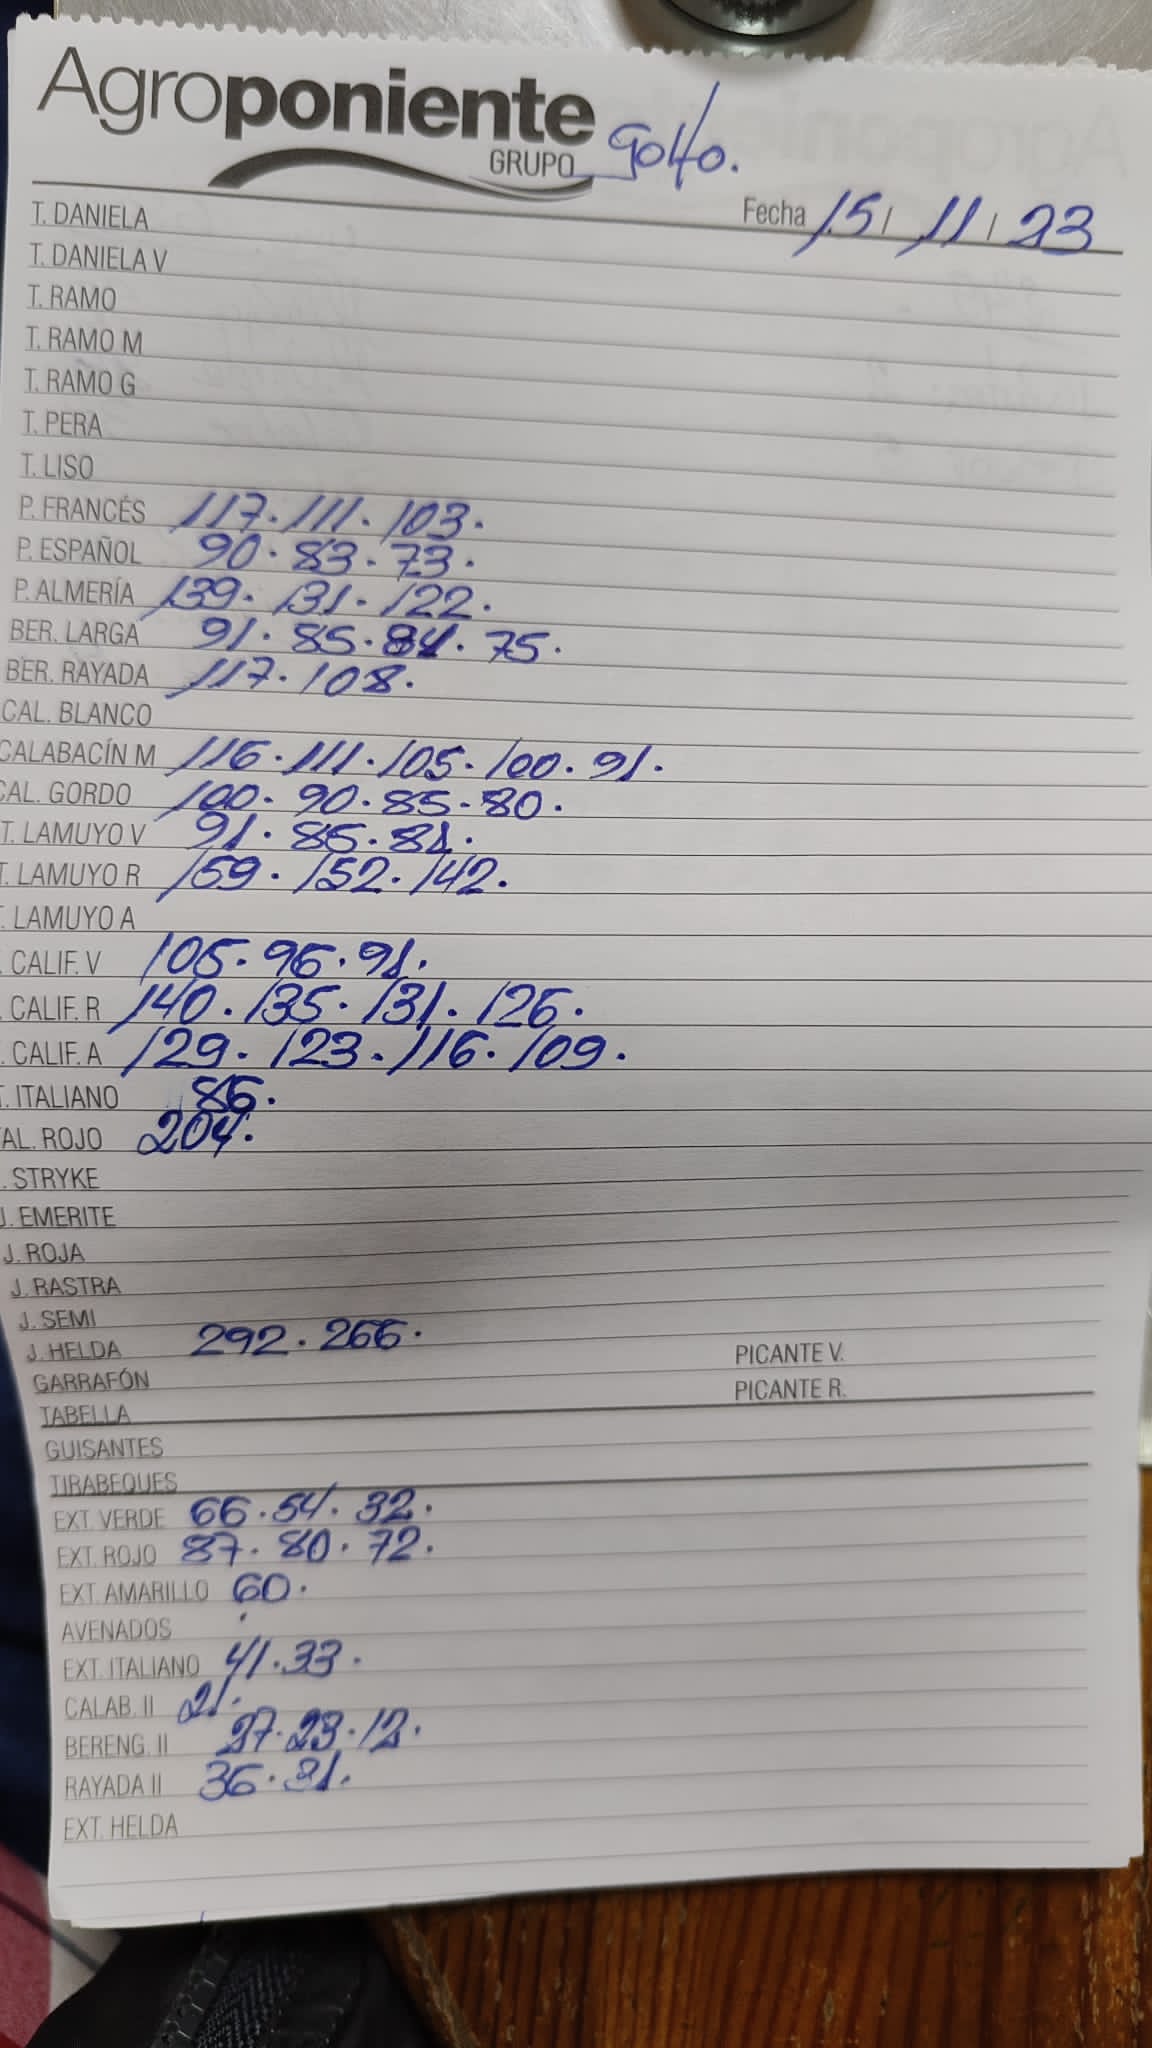 Agroponiente
GRUPO Golfo.
Fecha 15 / 11 / 23
T. DANIELA
T. DANIELA V
T. RAMO
T. RAMO M
T. RAMO G
T. PERA
T. LISO
P. FRANCÉS 117. 111. 103.
P. ESPAÑOL 90. 83. 73.
P. ALMERÍA 139. 131. 122.
BER. LARGA 91. 85. 84. 75.
BER. RAYADA 117. 108.
CAL. BLANCO
CALABACÍN M 116. 111. 105. 100. 91.
CAL. GORDO 100. 90. 85. 80.
T. LAMUYO V 91. 86. 81.
T. LAMUYO R 159. 152. 142.
T. LAMUYO A
. CALIF. V 105. 96. 91.
. CALIF. R 140. 135. 131. 126.
. CALIF. A 129. 123. 116. 109.
T. ITALIANO 86.
AL. ROJO 204.
. STRYKE
J. EMERITE
J. ROJA
J. RASTRA
J. SEMI
J. HELDA 292. 266.
PICANTE V.
GARRAFÓN
PICANTE R.
TABELLA
GUISANTES
TIRABEQUES
EXT. VERDE 66. 54. 32.
EXT. ROJO 87. 80. 72.
EXT. AMARILLO 60.
AVENADOS
EXT. ITALIANO 41. 33.
CALAB. II 21.
BERENG. II 27. 23. 12.
RAYADA II 36. 31.
EXT. HELDA